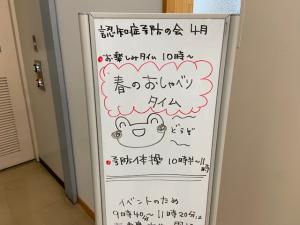 認知症予防の会 4月
●お楽しみタイム 10時〜
春のおしゃべり
タイム
どうぞ
●予防体操 10時半〜11時
イベントのため
9時40分〜11時20分は